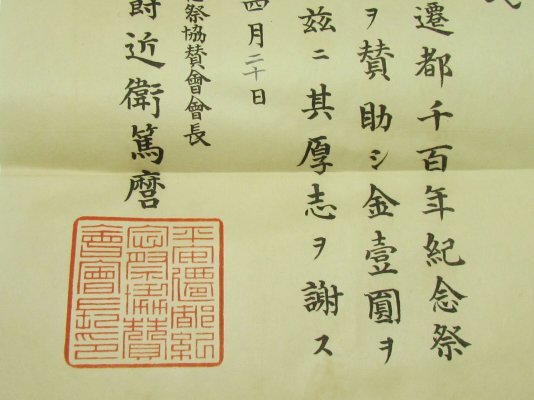 遷都千百年紀念祭
ヲ賛助シ金壹圓ヲ
茲ニ其厚志ヲ謝ス
四月二十日
祭協賛會會長
爵近衛篤麿
平安遷都紀
念祭協賛
會會長印